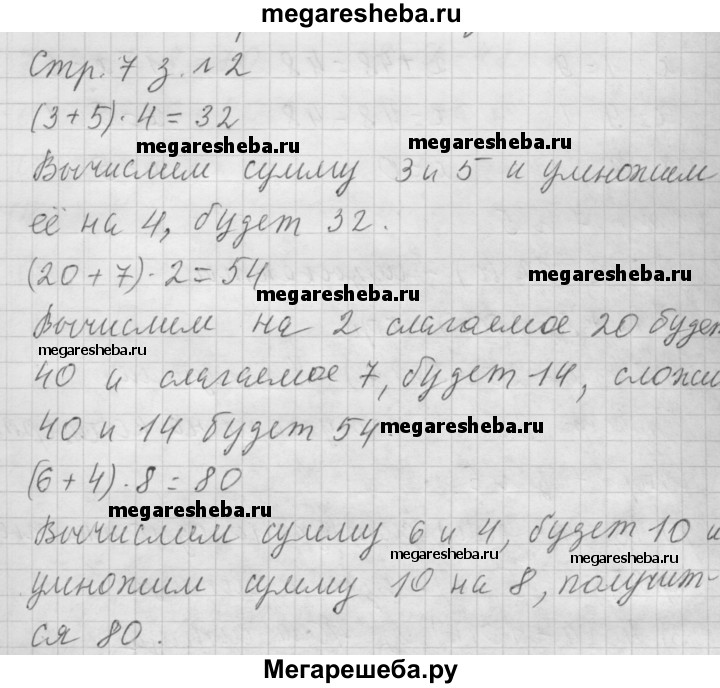 megaresheba.ru
Стр. 7 з. №2
(3+5)·4=32
megaresheba.ru
megaresheba.ru
Вычислим сумму 3 и 5 и умножим
её на 4, будет 32.
(20+7)·2=54
megaresheba.ru
megaresheba.ru
Вычислим на 2 слагаемое 20 будет
megaresheba.ru
40 и слагаемое 7, будет 14, сложи
megaresheba.ru
40 и 14 будет 54.
megaresheba.ru
(6+4)·8=80
megaresheba.ru
Вычислим сумму 6 и 4, будет 10 и
megaresheba.ru
megaresheba.ru
умножим сумму 10 на 8, получит-
ся 80.
megaresheba.ru
Мегарешеба.ру